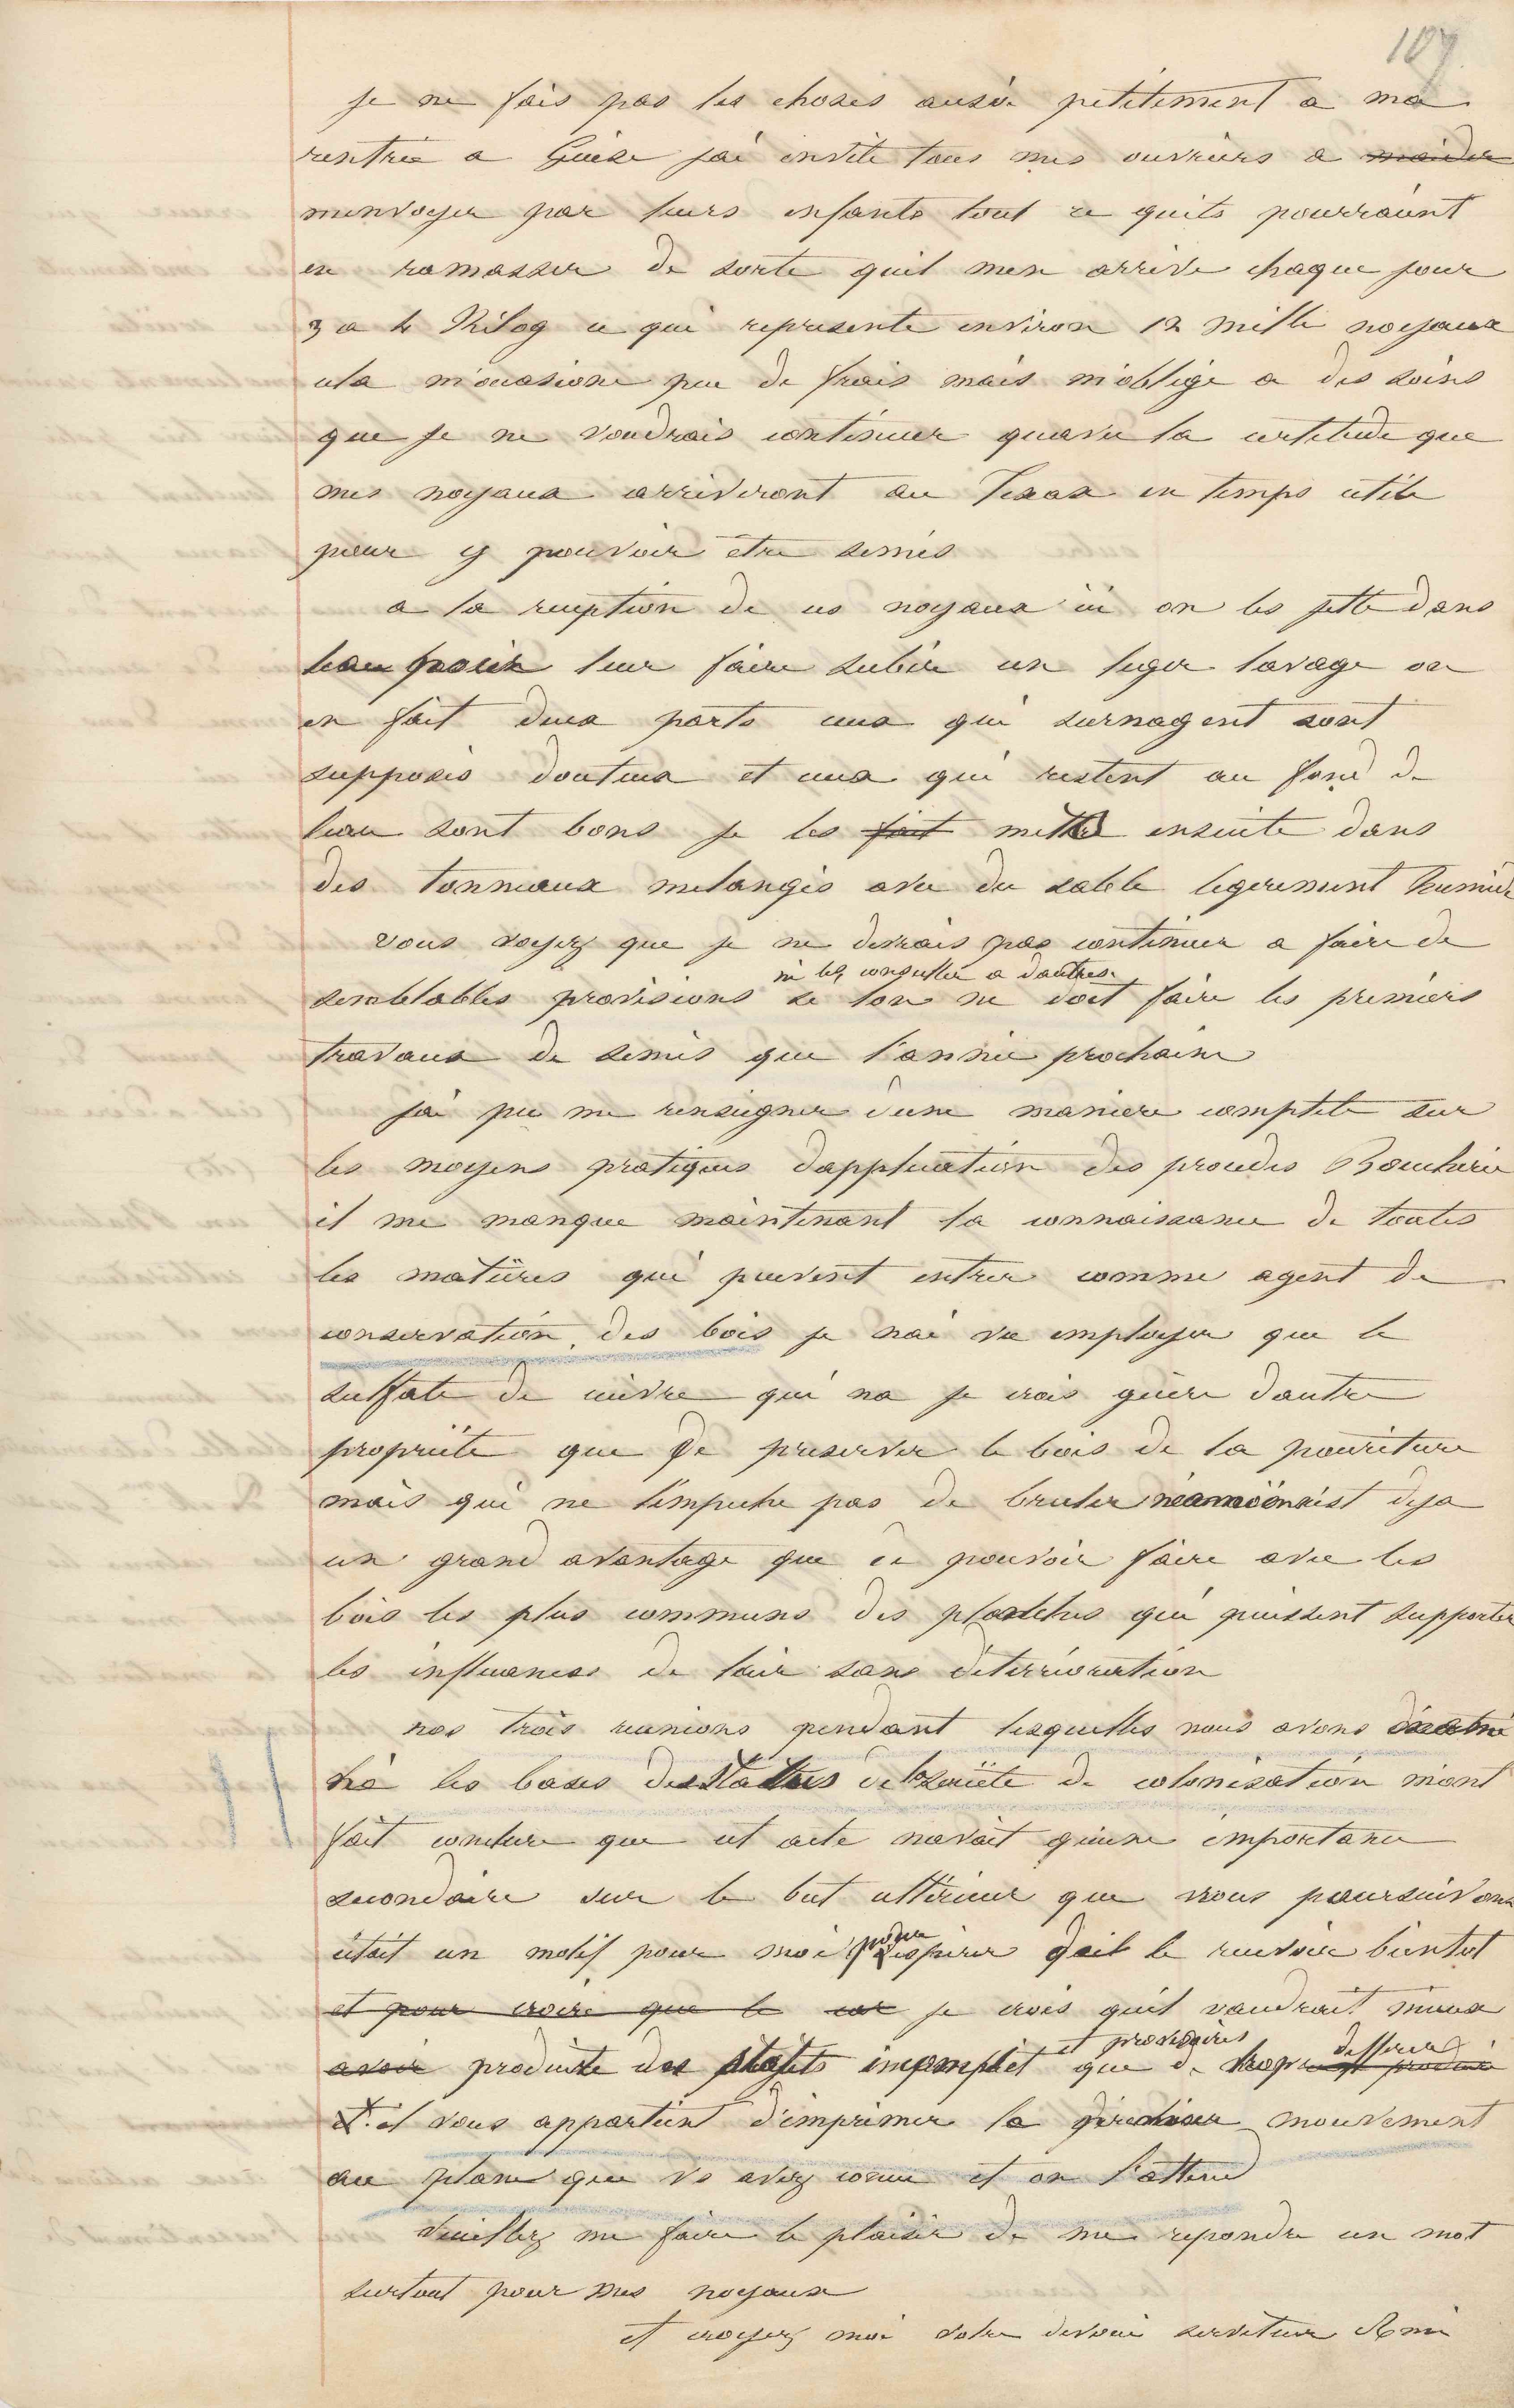 107
je ne fais pas les choses aussi petitement a ma
rentrée a Guise jai invité tous mes ouvriers a
menvoyer par leurs enfants tout ce quils pourraient
en ramasser de sorte quil men arrive chaque jour
3 a 4 Kilog ce qui represente environ 12 mille noyaux
cela m'occasione peu de frais mais m'oblige a des soins
que je ne voudrais continuer quavec la certitude que
mes noyaux arriveront au Texas en temps utile
pour y pouvoir etre semés
a la reception de ces noyaux ici on les jette dans
leau pour leur faire subir un leger lavage on
en fait deux parts ceux qui surnagent sont
supposés douteux et ceux qui restent au fond de
leau sont bons je les fait mettre ensuite dans
des tonneaux melangés avec du sable legerement humide
vous voyez que je ne devrais pas continuer a faire de
ni les conseiller a dautres
semblables provisions si lon ne doit faire les premiers
travaux de semis que l'année prochaine
jai pu me renseigner d'une maniere complete sur
les moyens pratiques dapplication des procedés Boucherie
il me manque maintenant la connaissance de toutes
les matières qui peuvent entrer comme agent de
conservation des bois je nai vu employer que le
sulfate de cuivre qui na je crois guère dautre
propriété que de preserver le bois de la pouriture
mais qui ne lempeche pas de bruler néamoins cest deja
un grand avantage que de pouvoir faire avec les
bois les plus communs des planches qui puissent supporter
les influences de lair sans déterrioration
nos trois reunions pendant lesquelles nous avons
les bases des statuts de la société de colonisation m'ont
fait conclure que cet acte navait quune importance
secondaire sur le but ultérieur que nous poursuivons
était un motif pour moi pour esperer quil le recevoir bientot
et pour croire que le car je crois quil vaudrait mieux
et provisoires differer
avoir produire des statuts incomplet que de trop
et il vous appartient d'imprimer le premier mouvement
au plan que vs avez concu et on l'attend
Veuillez me faire le plaisir de me repondre un mot
surtout pour mes noyaux
et croyez moi votre devoué serviteur & ami